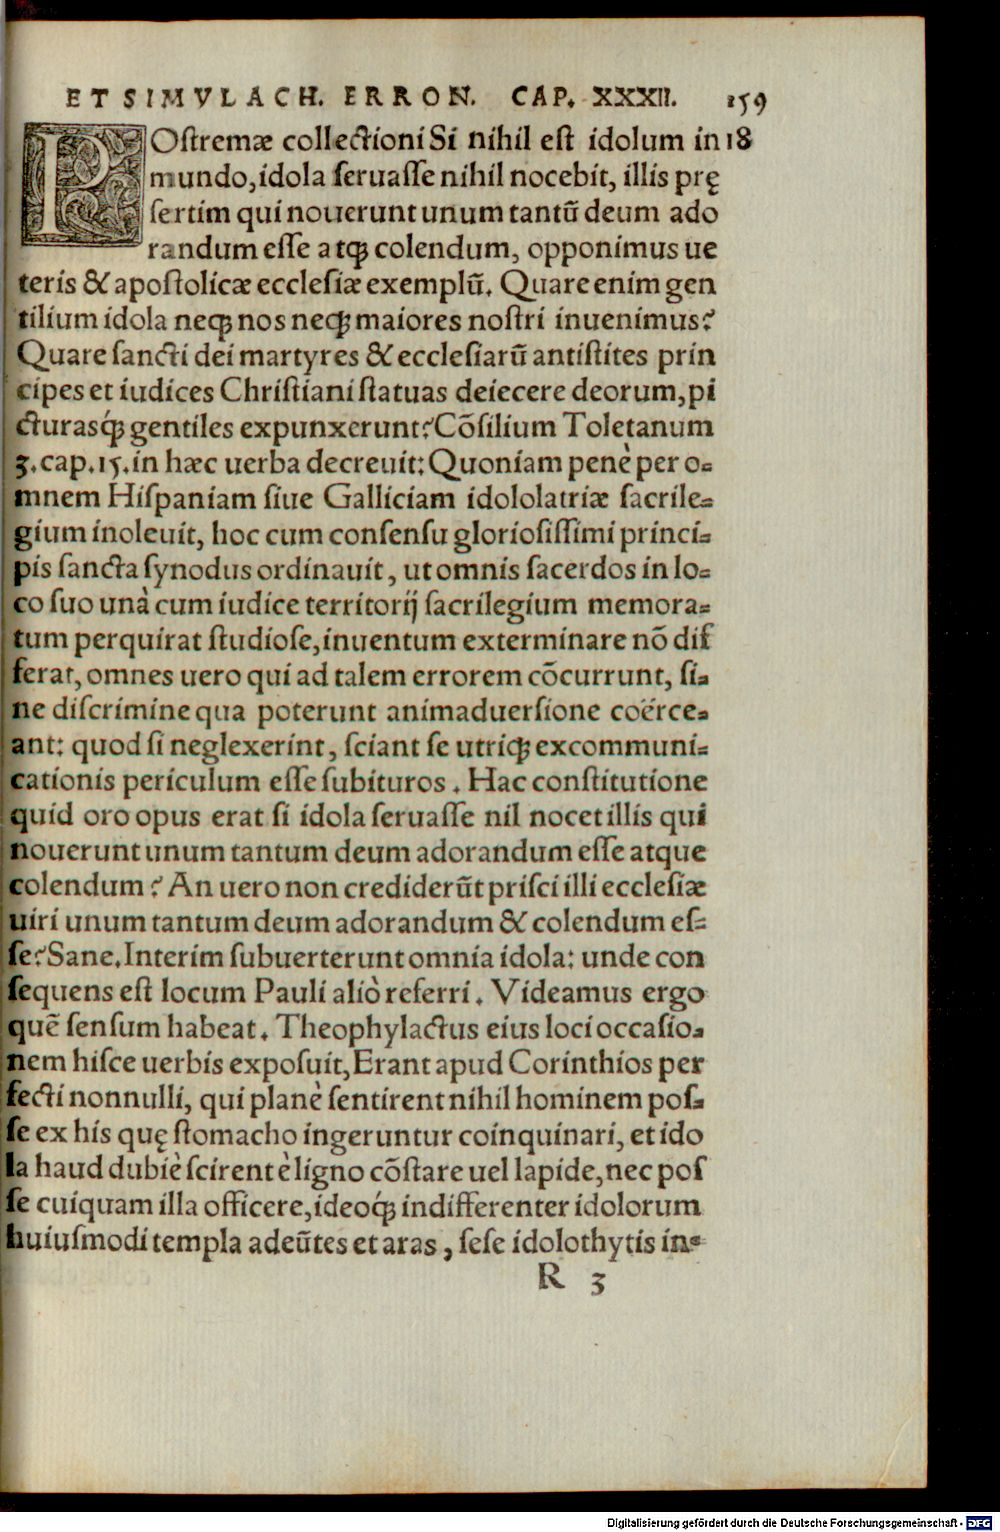 ET SIMVLACH. ERRON. CAP. XXXII. 159
POstremæ collectioni Si nihil est idolum in 18
mundo, idola seruasse nihil nocebit, illis prę
sertim qui nouerunt unum tantū deum ado
randum esse atq; colendum, opponimus ue
teris & apostolicæ ecclesiæ exemplū. Quare enim gen
tilium idola neq; nos neq; maiores nostri inuenimus?
Quare sancti dei martyres & ecclesiarū antistites prin
cipes et iudices Christiani statuas deiecere deorum, pi
cturasq́; gentiles expunxerunt? Cōsilium Toletanum
3. cap. 15. in hæc uerba decreuit: Quoniam penè per o=
mnem Hispaniam siue Galliciam idololatriæ sacrile=
gium inoleuit, hoc cum consensu gloriosissimi princi=
pis sancta synodus ordinauit, ut omnis sacerdos in lo=
co suo unà cum iudice territorij sacrilegium memora=
tum perquirat studiose, inuentum exterminare nō dif
ferat, omnes uero qui ad talem errorem cōcurrunt, si=
ne discrimine qua poterunt animaduersione coërce=
ant: quod si neglexerint, sciant se utriq; excommuni=
cationis periculum esse subituros. Hac constitutione
quid oro opus erat si idola seruasse nil nocet illis qui
nouerunt unum tantum deum adorandum esse atque
colendum? An uero non crediderūt prisci illi ecclesiæ
uiri unum tantum deum adorandum & colendum es=
se? Sane. Interim subuerterunt omnia idola: unde con
sequens est locum Pauli aliò referri. Videamus ergo
quē sensum habeat. Theophylactus eius loci occasio=
nem hisce uerbis exposuit, Erant apud Corinthios per
fecti nonnulli, qui planè sentirent nihil hominem pos=
se ex his quę stomacho ingeruntur coinquinari, et ido
la haud dubiè scirent è ligno cōstare uel lapide, nec pos
se cuiquam illa officere, ideoq́; indifferenter idolorum
huiusmodi templa adeūtes et aras, sese idolothytis in=
R 3
Digitalisierung gefördert durch die Deutsche Forschungsgemeinschaft - DFG